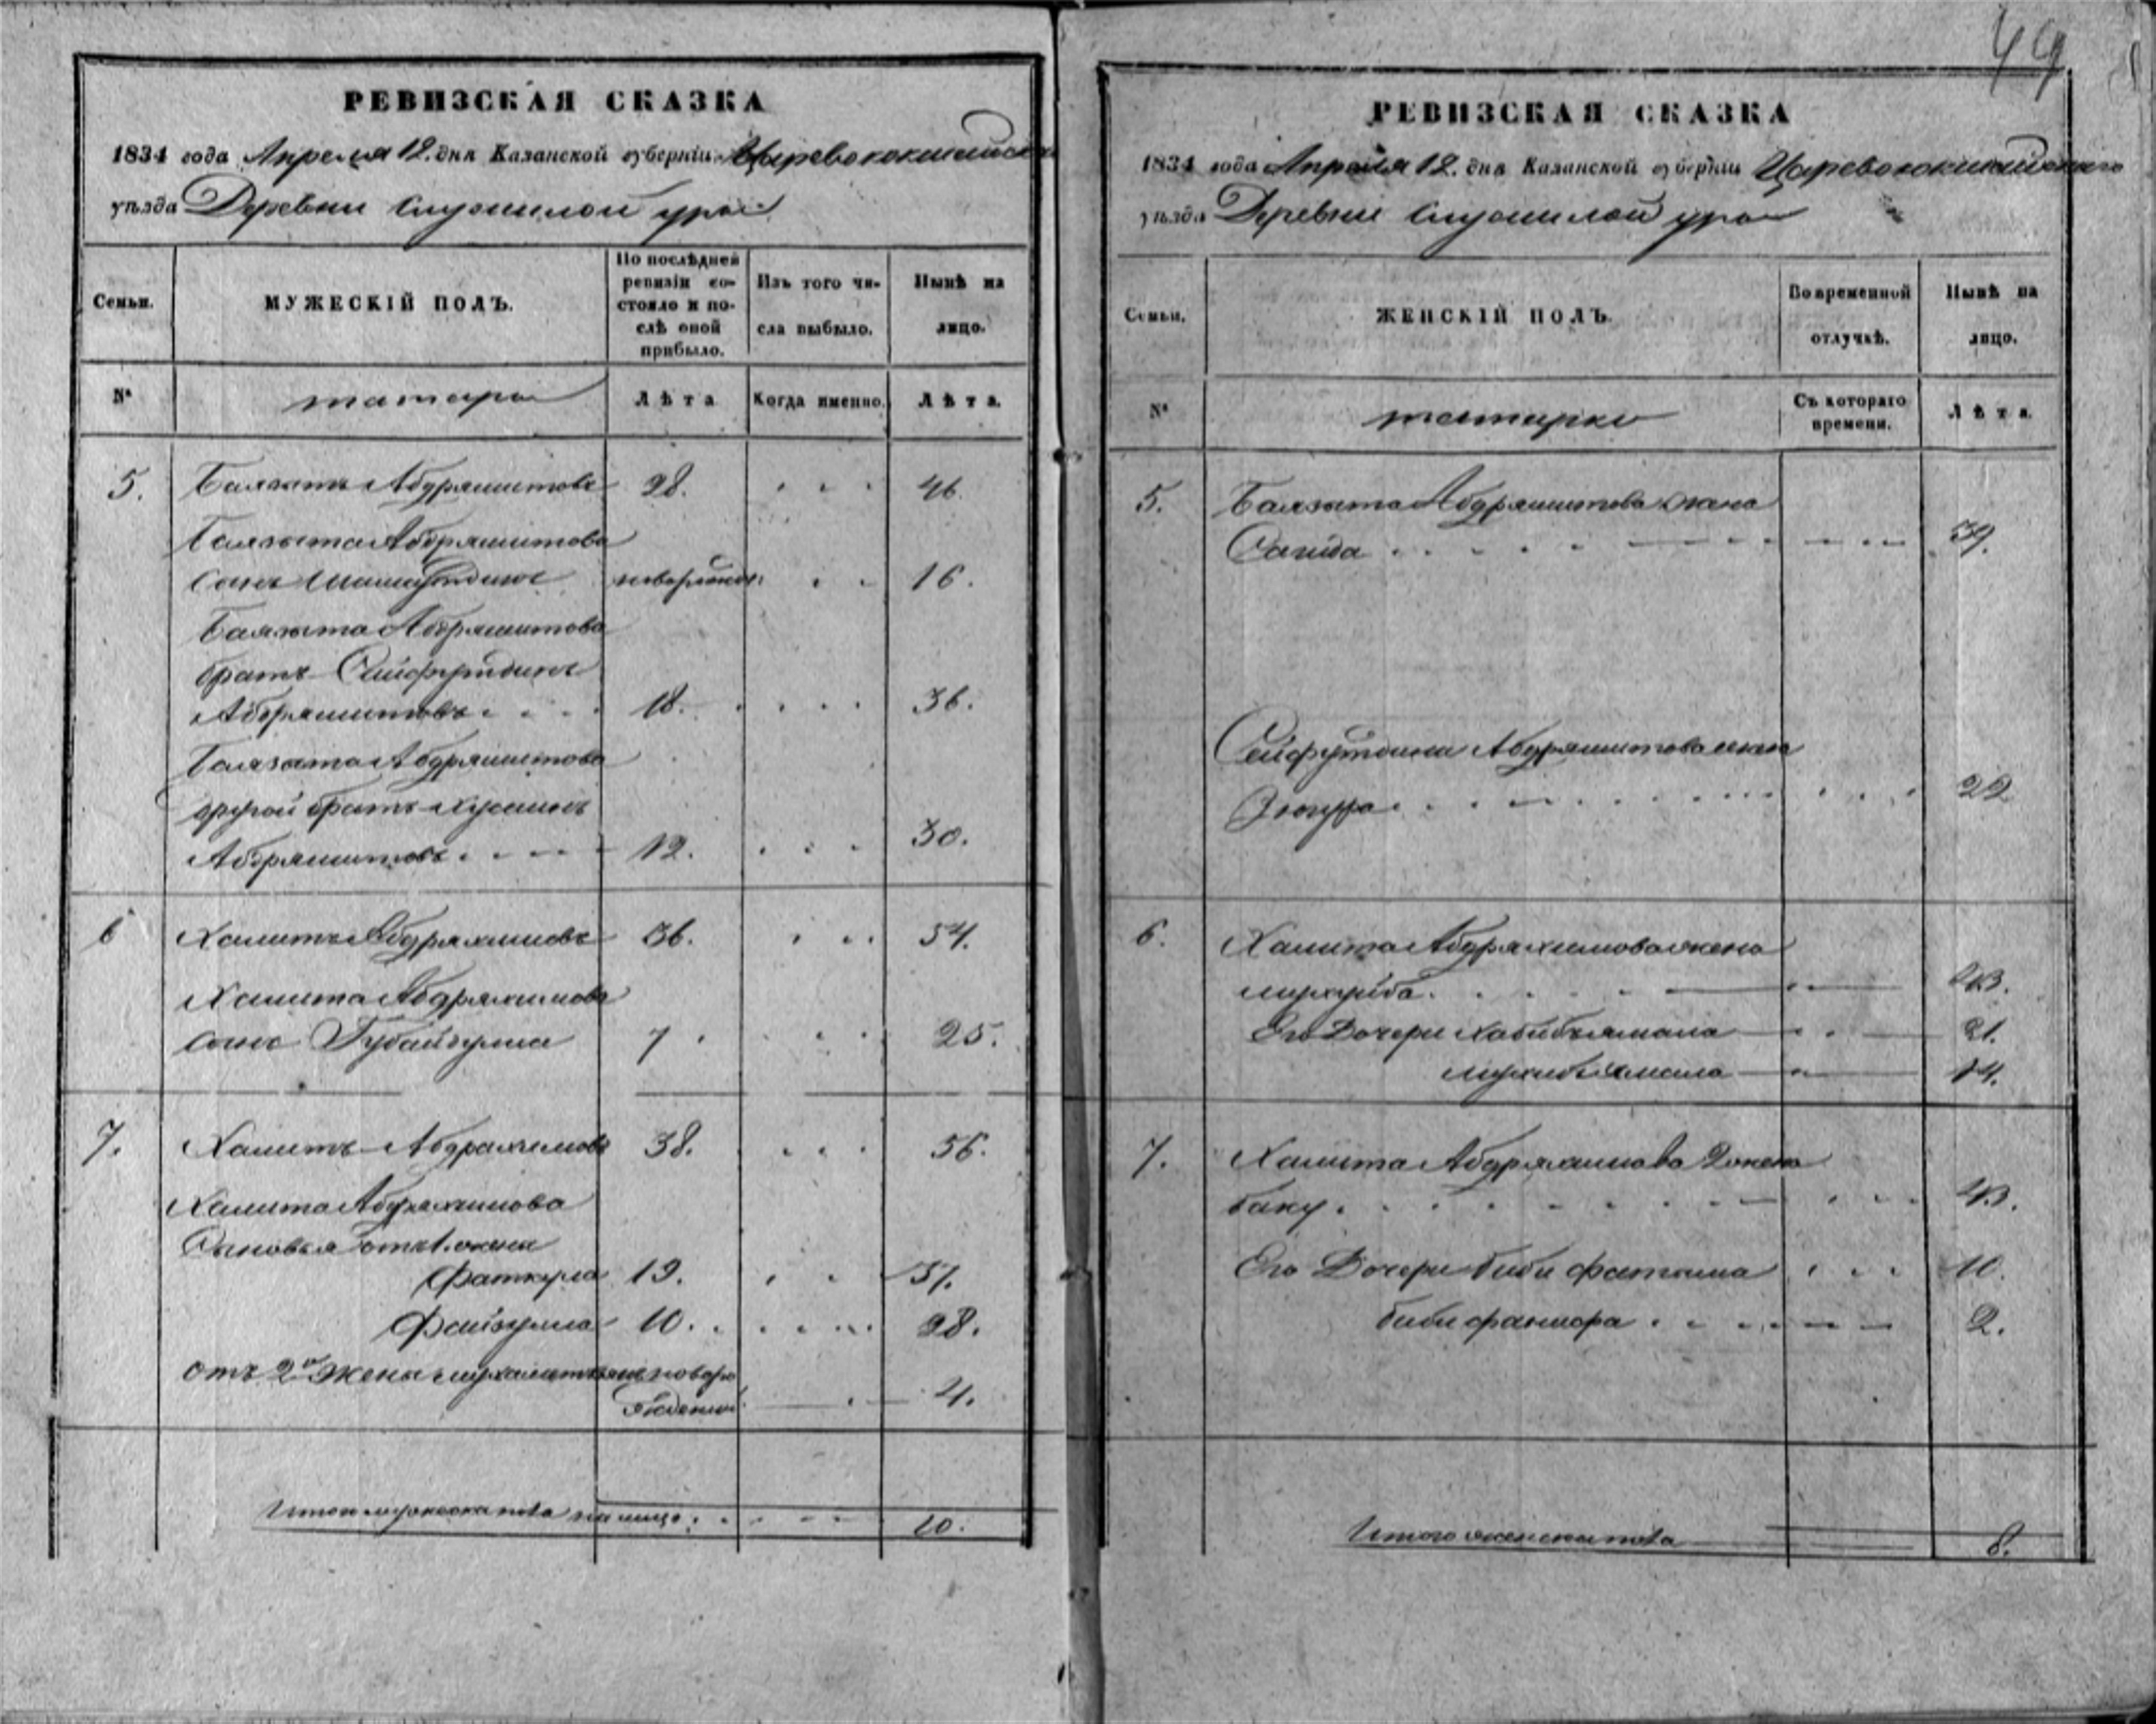 РЕВИЗСКАЯ СКАЗКА
1834 года Апреля 12. дня Казанской губерніи Царевококшайскаго
уѣзда Деревни
Семьи.
МУЖЕСКІЙ ПОЛЪ.
По послѣдней ревизіи состояло и послѣ оной прибыло.
Изъ того числа выбыло.
Нынѣ на лицо.
№
татара
Лѣта
Когда именно.
Лѣта.
5. Баязытъ Абдряшитовъ 28. 46.
Баязыта Абдряшитова
сынъ новорожден: 16.
Баязыта Абдряшитова
братъ Сайфутдинъ
Абдряшитовъ 18. 36.
Баязыта Абдряшитова
другой братъ
Абдряшитовъ 12. 30.
6 Хамитъ Абдряхимовъ 36. 54.
Хамита Абдряхимова
сынъ Губайдулла 7 25.
7. Хамитъ Абдрахимовъ 38. 56.
Хамита Абдряхимова
Сыновья отъ 1. жены
Фаткула 19. 37.
Файзулла 10. 28.
отъ 2й жены новоро
жденной 4.
Итого мужеска пола на лицо: 10.
49
РЕВИЗСКАЯ СКАЗКА
1834 года Апреля 12. дня Казанской губерніи Царевококшайскаго
уѣзда Деревни
Семьи.
ЖЕНСКІЙ ПОЛЪ.
Во временной отлучкѣ.
Нынѣ на лицо.
№
татарки
Съ котораго времени.
Лѣта.
5. Баязыта Абдряшитова жена
Сагида 39.
Сейфутдина Абдряшитова жена
22
6. Хамита Абдряхимова жена
43.
Его Дочери Хабибъямала 21.
14.
7. Хамита Абдряхимова 2 жена
баку 43.
Его Дочери биби фатыма 10.
биби 2.
Итого женска пола 8.